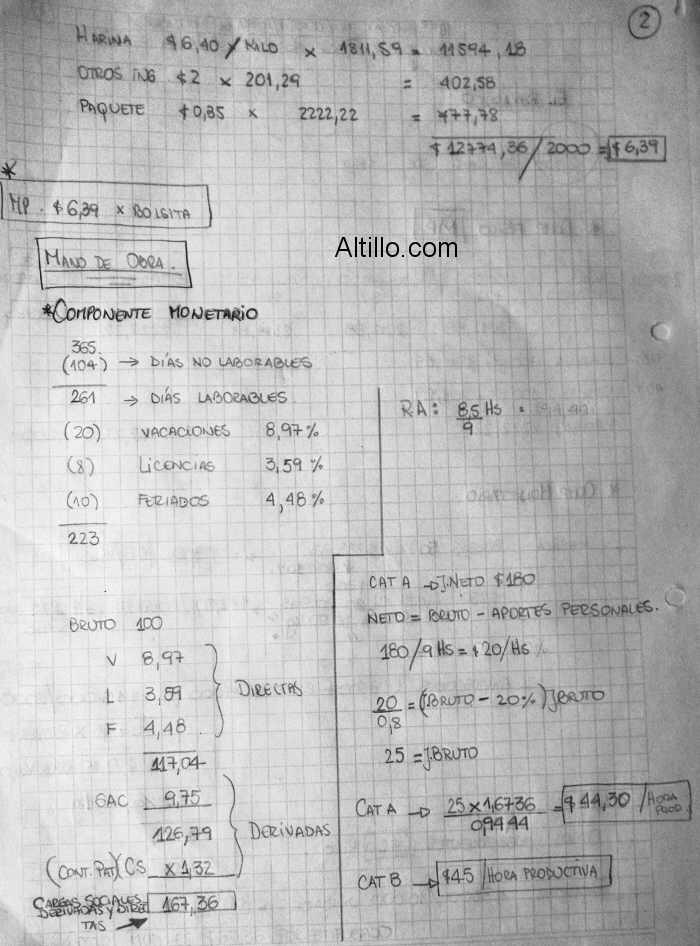 2
HARINA $6,40/KILO x 1811,59 = 11594,18
OTROS ING $2 x 201,29 = 402,58
PAQUETE $0,35 x 2222,22 = 777,78
$12774,36/2000 = $6,39
*
MP. $6,39 x BOLSITA
Altillo.com
MANO DE OBRA.
*COMPONENTE MONETARIO
365
(104) → DÍAS NO LABORABLES
261 → DÍAS LABORABLES
(20) VACACIONES 8,97%
(8) LICENCIAS 3,59%
(10) FERIADOS 4,48%
223
RA: 8,5 Hs
9
BRUTO 100
V 8,97
L 3,59
F 4,48
DIRECTAS
117,04
SAC 9,75
126,79
(CONT. PAT) CS x 1,32
DERIVADAS
CARGAS SOCIALES
DERIVADAS Y DIREC
TAS → 167,36
CAT A → J.NETO $180
NETO = BRUTO - APORTES PERSONALES.
180/9 HS = $20/HS
20/0,8 = (BRUTO - 20%) JBRUTO
25 = J.BRUTO
CAT A → 25 x 1,6736 / 0,9444 = $44,30 / HORA PROD
CAT B → $45 / HORA PRODUCTIVA